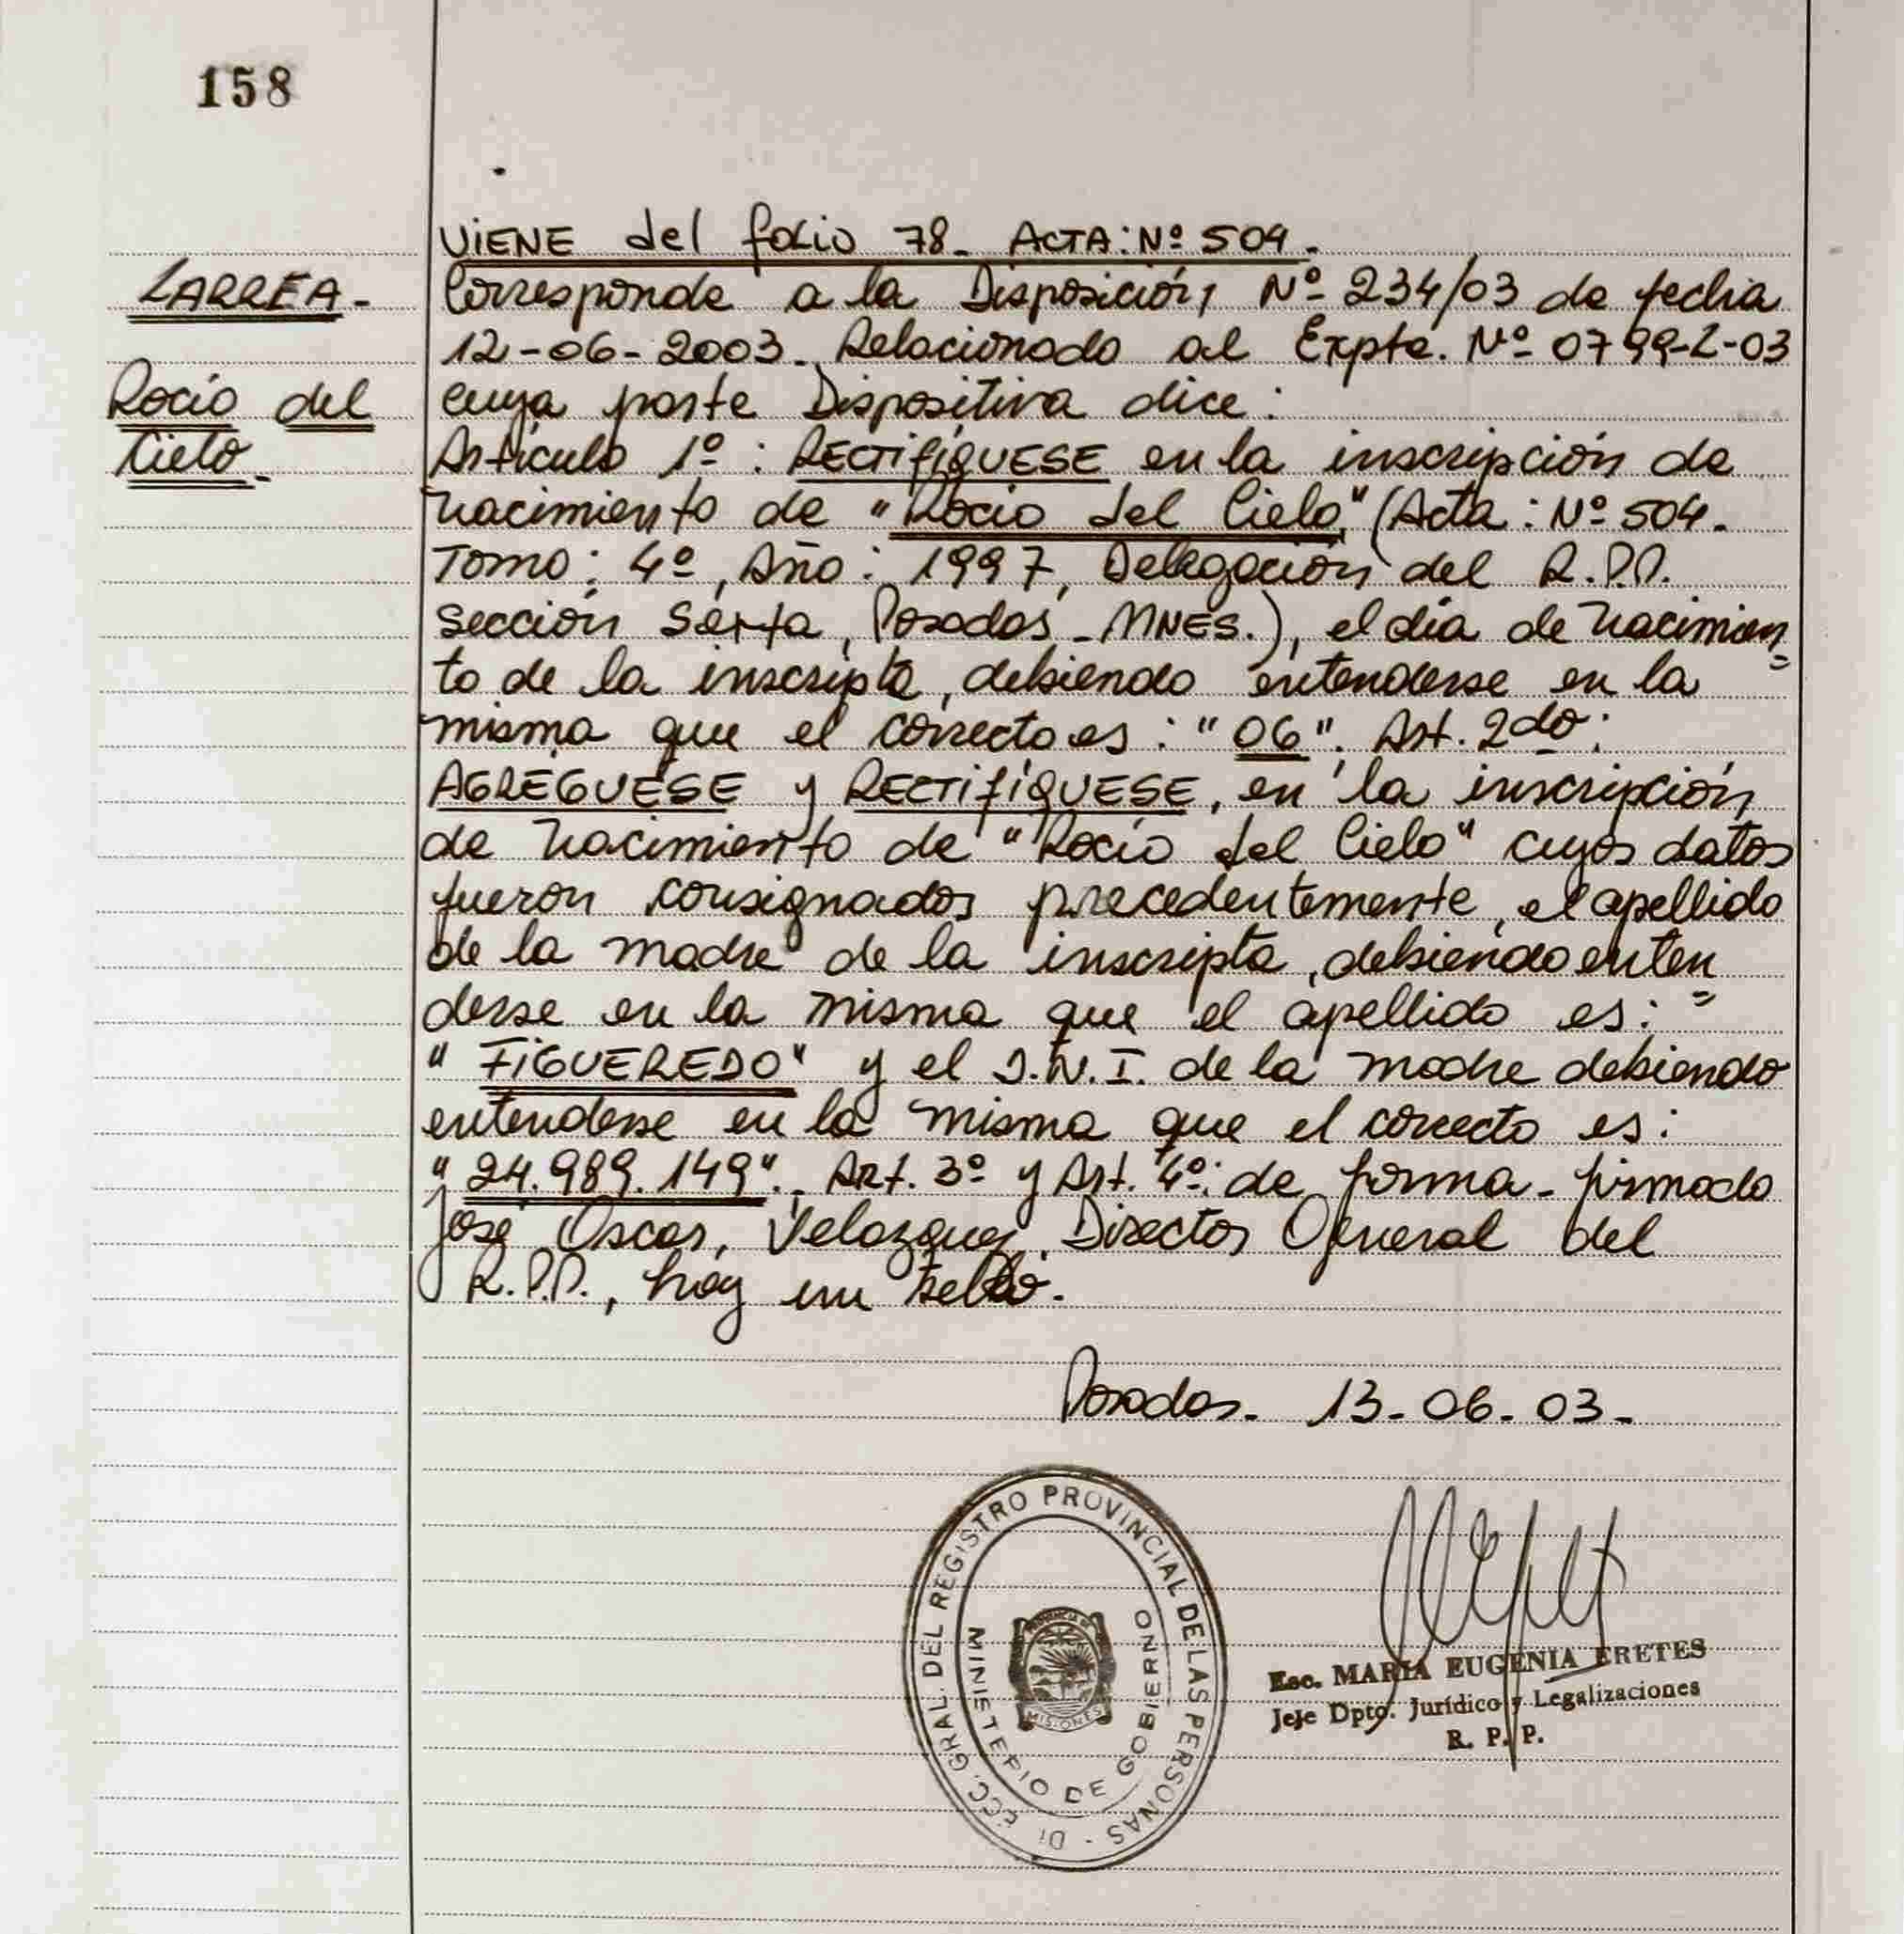 158
VIENE del folio 78. ACTA: Nº 504.
LARREA.
Corresponde a la Disposición, Nº 234/03 de fecha
12-06-2003. Relacionado al Expte. Nº 0799-L-03
Rocío del
cuya parte Dispositiva dice:
Cielo.
Artículo 1º: RECTIFÍQUESE en la inscripción de
nacimiento de "Rocío del Cielo" (Acta: Nº 504.
Tomo: 4º, Año: 1997, Delegación del R.P.P.
Sección Sexta, Posadas - MNES.), el día de nacimien=
to de la inscripta, debiendo entenderse en la
misma que el correcto es: "06". Art. 2do:
AGRÉGUESE y RECTIFÍQUESE, en la inscripción
de nacimiento de "Rocío del Cielo" cuyos datos
fueron consignados precedentemente, el apellido
de la madre de la inscripta, debiendo enten=
derse en la misma que el apellido es:
"FIGUEREDO" y el D.N.I. de la madre debiendo
entenderse en la misma que el correcto es:
"24.989.149". Art. 3º y Art. 4º: de forma - firmado
José Oscar, Velazquez, Director General del
R.P.P., hay un sello.
Posadas. 13-06-03-
GRAL. DEL REGISTRO PROVINCIAL DE LAS PERSONAS -
MINISTERIO DE GOBIERNO
MISIONES
Esc. MARIA EUGENIA ERETES
Jefe Dpto. Jurídico y Legalizaciones
R. P. P.